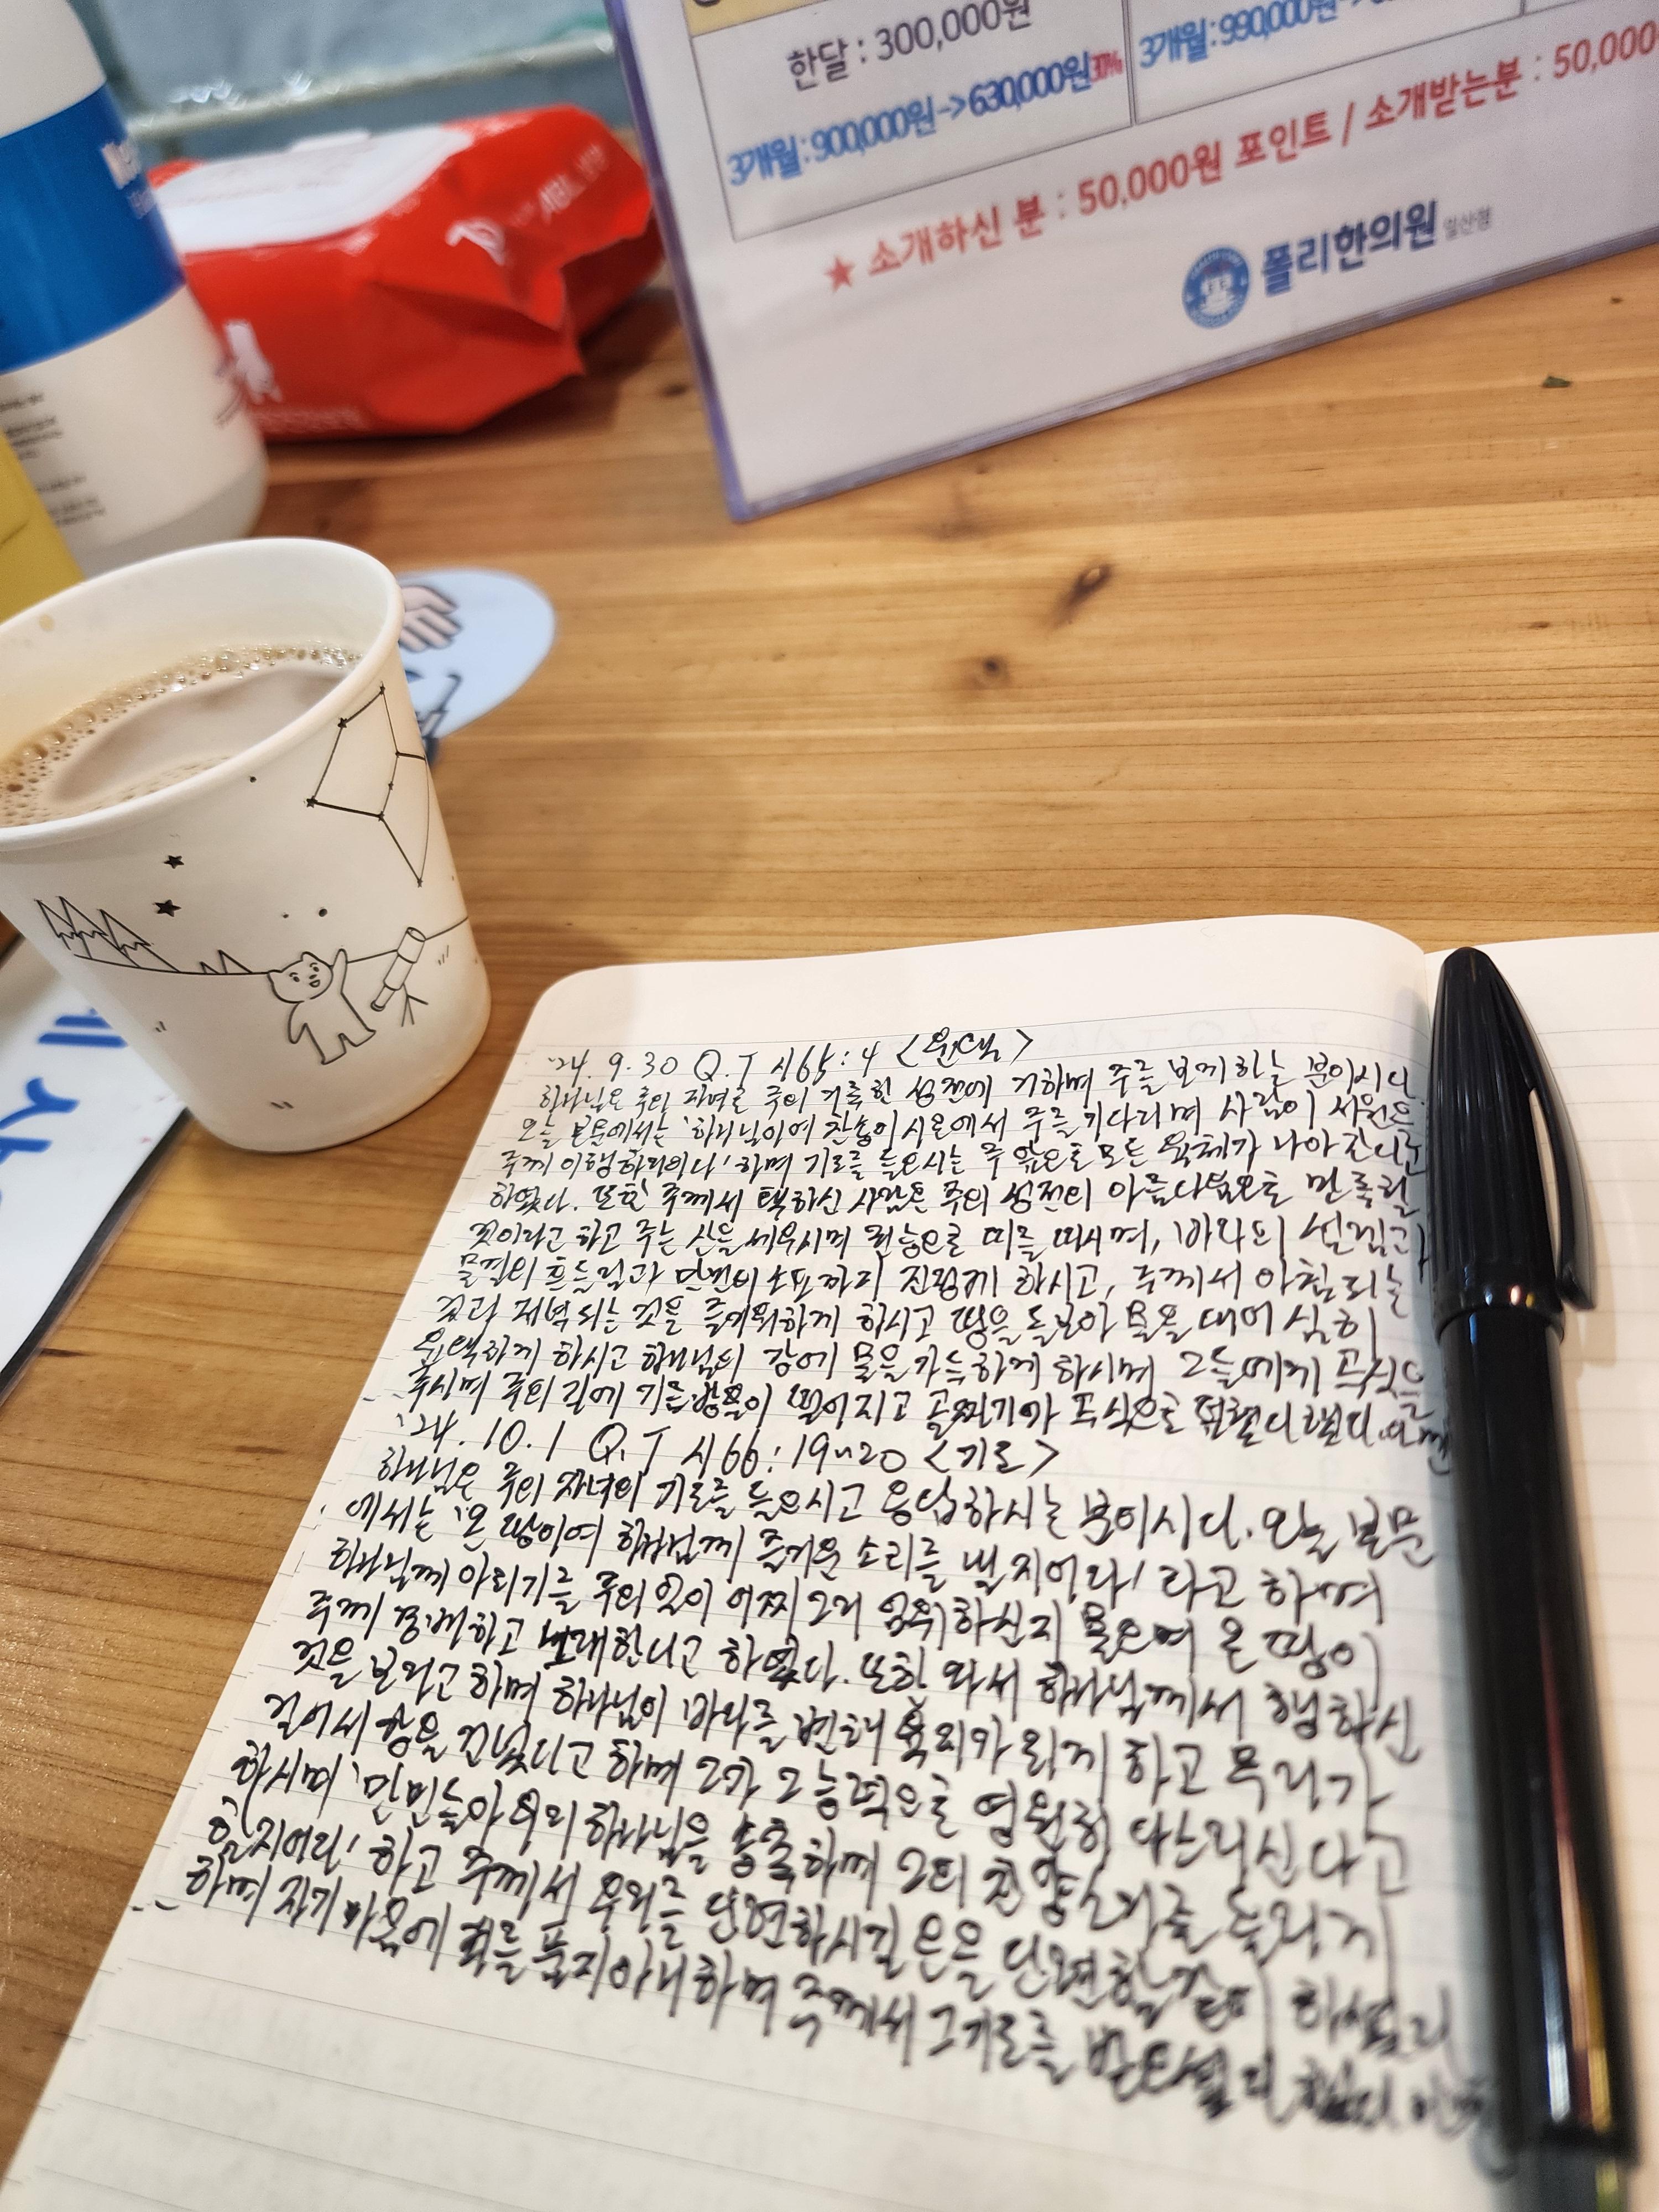 한달 : 300,000원
3개월:900,000원->630,000원30%
3개월:990,000원->
★ 소개하신 분 : 50,000원 포인트 / 소개받는분 : 50,000
폴리한의원 일산점
'24. 9. 30 Q.T 시65:4 <은택>
하나님은 주의 자녀로 주의 거룩한 성전에 거하며 주를 보게 하는 분이시다.
오늘 본문에서는 '하나님이여 찬송이 시온에서 주를 기다리며 사람이 서원을
주께 이행하리이다' 하며 기도를 들으시는 주 앞으로 모든 육체가 나아간다고
하였다. 또한 주께서 택하신 사람은 주의 성전의 아름다움으로 만족할
것이라고 하고 주는 산을 세우시며 권능으로 띠를 띠시며, 바다의 설렘과
물결의 흔들림과 만민의 소요까지 진정하게 하시고, 주께서 아침 되는
것과 저녁 되는 것을 즐거워하게 하시고 땅을 돌보아 물을 대어 심히
윤택하게 하시고 하나님의 강에 물을 가득하게 하시며 그들에게 곡식을
주시며 주의 길에 기름 방울이 떨어지고 골짜기가 곡식으로 덮였다 했다.
'24. 10. 1 Q.T 시66:19~20 <기도>
하나님은 주의 자녀의 기도를 들으시고 응답하시는 분이시다. 오늘 본문
에서는 '온 땅이여 하나님께 즐거운 소리를 낼지어다' 라고 하며
하나님께 아뢰기를 주의 일이 어찌 그리 엄위하신지 물으며 온 땅이
주께 경배하고 노래한다고 하였다. 또한 와서 하나님께서 행하신
것을 보라고 하며 하나님이 바다를 변해 육지가 되게 하고 무리가
걸어서 강을 건넜다고 하며 그가 그 능력으로 영원히 다스리신다고
하시며 '만민들아 우리 하나님을 송축하며 그의 찬양 소리를 들리게
할지어다' 하고 주께서 우리를 단련하시길 은을 단련함 같이 하셨고
하며 자기 마음에 죄를 품지 아니하며 주께서 그 기도를 받으셨다